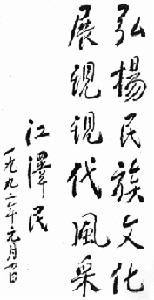 弘揚民族文化
展現現代風采
江澤民
一九九二年元月日